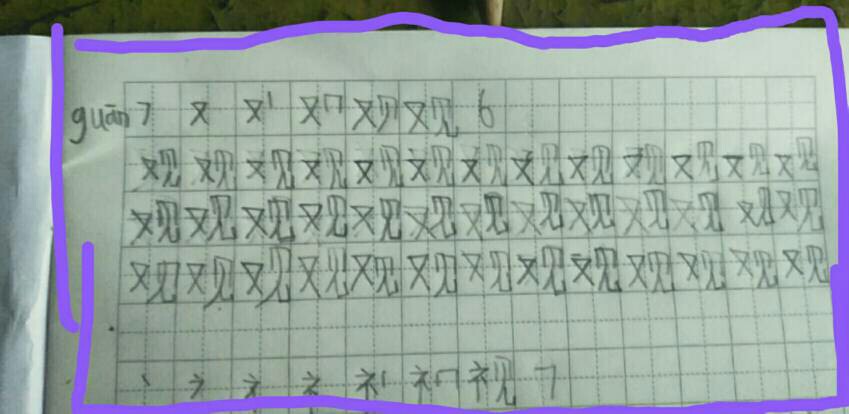 guān ㇇ 又 又丨 又冂 又贝 观 6
观 观 观 观 观 观 观 观 观 观 观 观 观
观 观 观 观 观 观 观 观 观 观 观 观 观
观 观 观 观 观 观 观 观 观 观 观 观 观
丶 礻 礻丨 礻冂 视 7